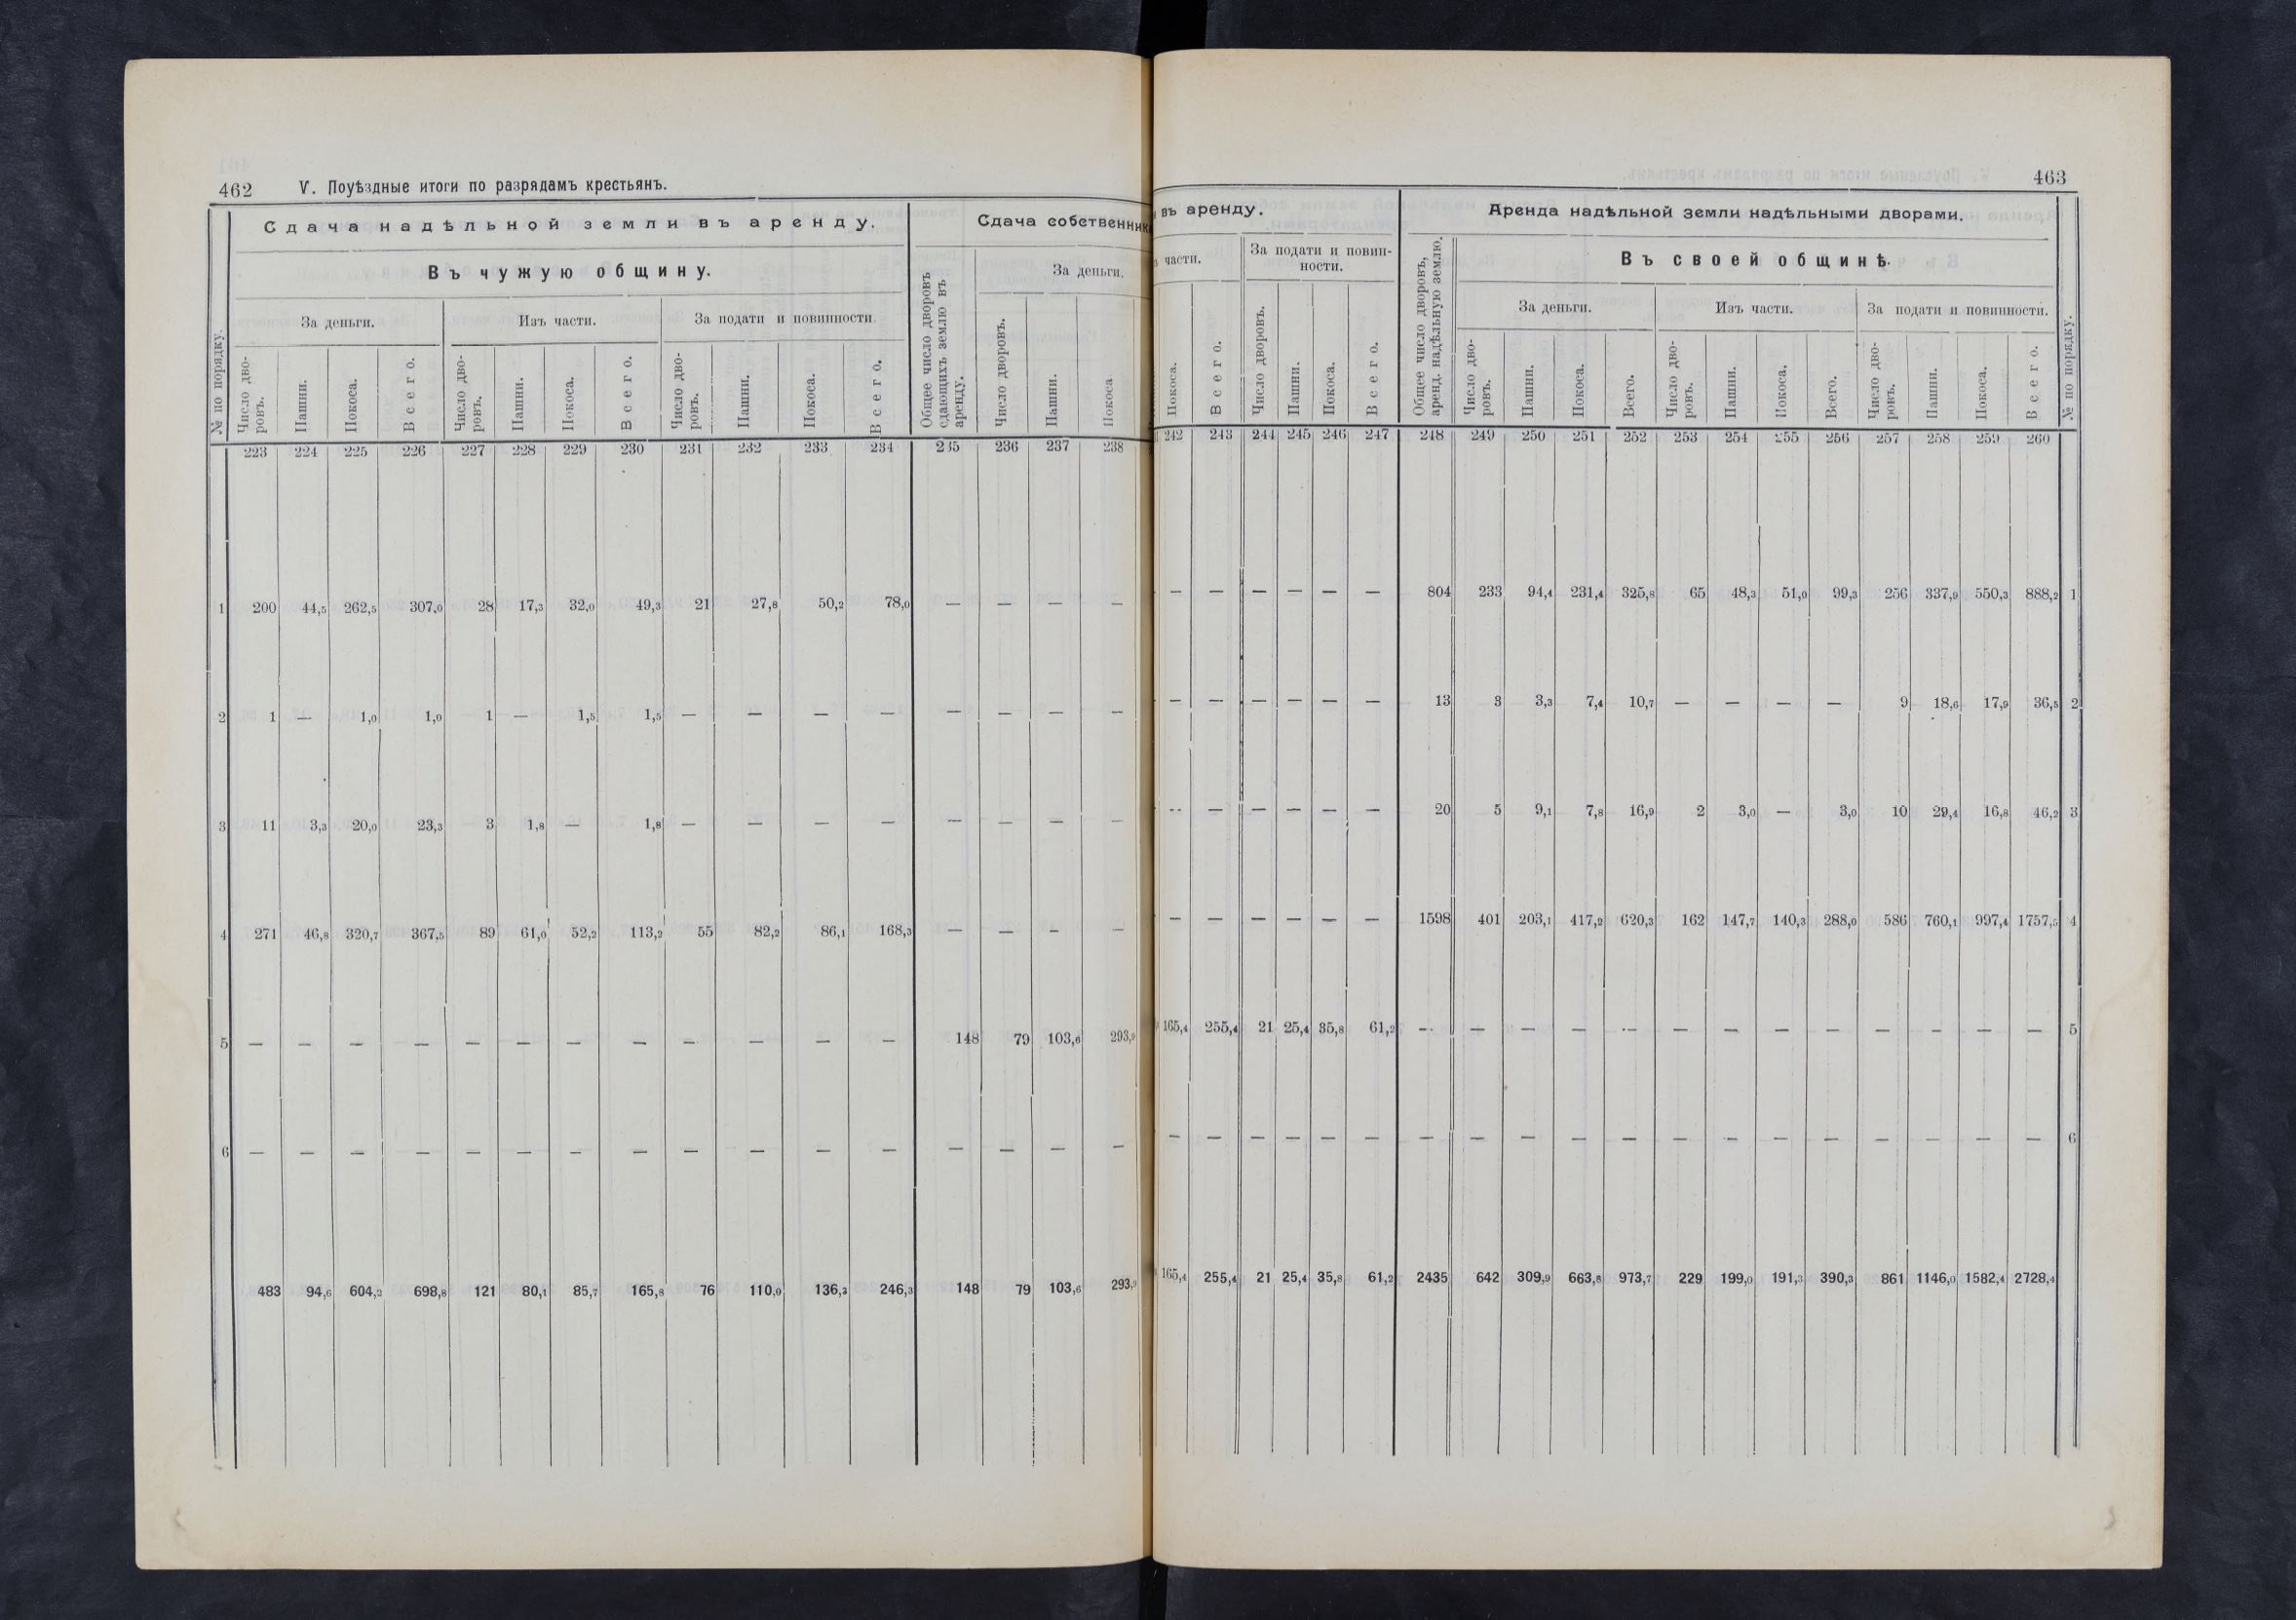 462 V. Поуѣздные итоги по разрядамъ крестьянъ.
№ по порядку.
Сдача надѣльной земли въ аренду.
Въ чужую общину.
За деньги. Изъ части. За подати и повинности.
Число дворовъ. Пашни. Покоса. Всего. Число дворовъ. Пашни. Покоса. Всего. Число дворовъ. Пашни. Покоса. Всего.
Общее число дворовъ сдающихъ землю въ аренду.
Сдача собственник
За деньги.
Число дворовъ. Пашни. Покоса
223 224 225 226 227 228 229 230 231 232 233 234 235 236 237 238
1 200 44,5 262,5 307,0 28 17,3 32,0 49,3 21 27,8 50,2 78,0 — — — —
2 1 — 1,0 1,0 1 — 1,5 1,5 — — — — — — — —
3 11 3,3 20,0 23,3 3 1,8 — 1,8 — — — — — — — —
4 271 46,8 320,7 367,5 89 61,0 52,2 113,2 55 82,2 86,1 168,3 — — — —
5 — — — — — — — — — — — — 148 79 103,6 293,9
6 — — — — — — — — — — — — — — — —
483 94,6 604,2 698,8 121 80,1 85,7 165,8 76 110,0 136,3 246,3 148 79 103,6 293,9
463
въ аренду.
части. За подати и повинности.
Покоса. Всего. Число дворовъ. Пашни. Покоса. Всего.
Общее число дворовъ, аренд. надѣльную землю.
Аренда надѣльной земли надѣльными дворами.
Въ своей общинѣ.
За деньги. Изъ части. За подати и повинности.
Число дворовъ. Пашни. Покоса. Всего. Число дворовъ. Пашни. Покоса. Всего. Число дворовъ. Пашни. Покоса. Всего.
№ по порядку.
242 243 244 245 246 247 248 249 250 251 252 253 254 255 256 257 258 259 260
— — — — — — 804 233 94,4 231,4 325,8 65 48,3 51,0 99,3 256 337,9 550,3 888,2 1
— — — — — — 13 3 3,3 7,4 10,7 — — — — 9 18,6 17,9 36,5 2
— — — — — — 20 5 9,1 7,8 16,9 2 3,0 — 3,0 10 29,4 16,8 46,2 3
— — — — — — 1598 401 203,1 417,2 620,3 162 147,7 140,3 288,0 586 760,1 997,4 1757,5 4
165,4 255,4 21 25,4 35,8 61,2 — — — — — — — — — — — — — 5
— — — — — — — — — — — — — — — — — — — 6
165,4 255,4 21 25,4 35,8 61,2 2435 642 309,9 663,8 973,7 229 199,0 191,3 390,3 861 1146,0 1582,4 2728,4